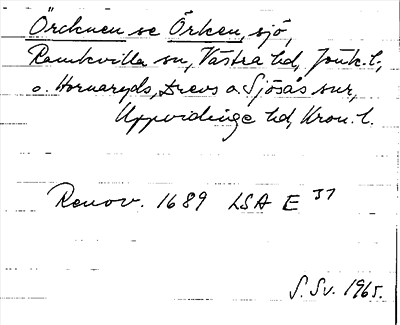 Örcknen se Örken, sjö,
Ramkvilla sn, Västra hd, Jönk. l.,
o. Hornaryds, Drevs o Sjösås snr,
Uppvidinge hd, Kron. l.
Renov. 1689 LSA E 37
S. Sv. 1965.